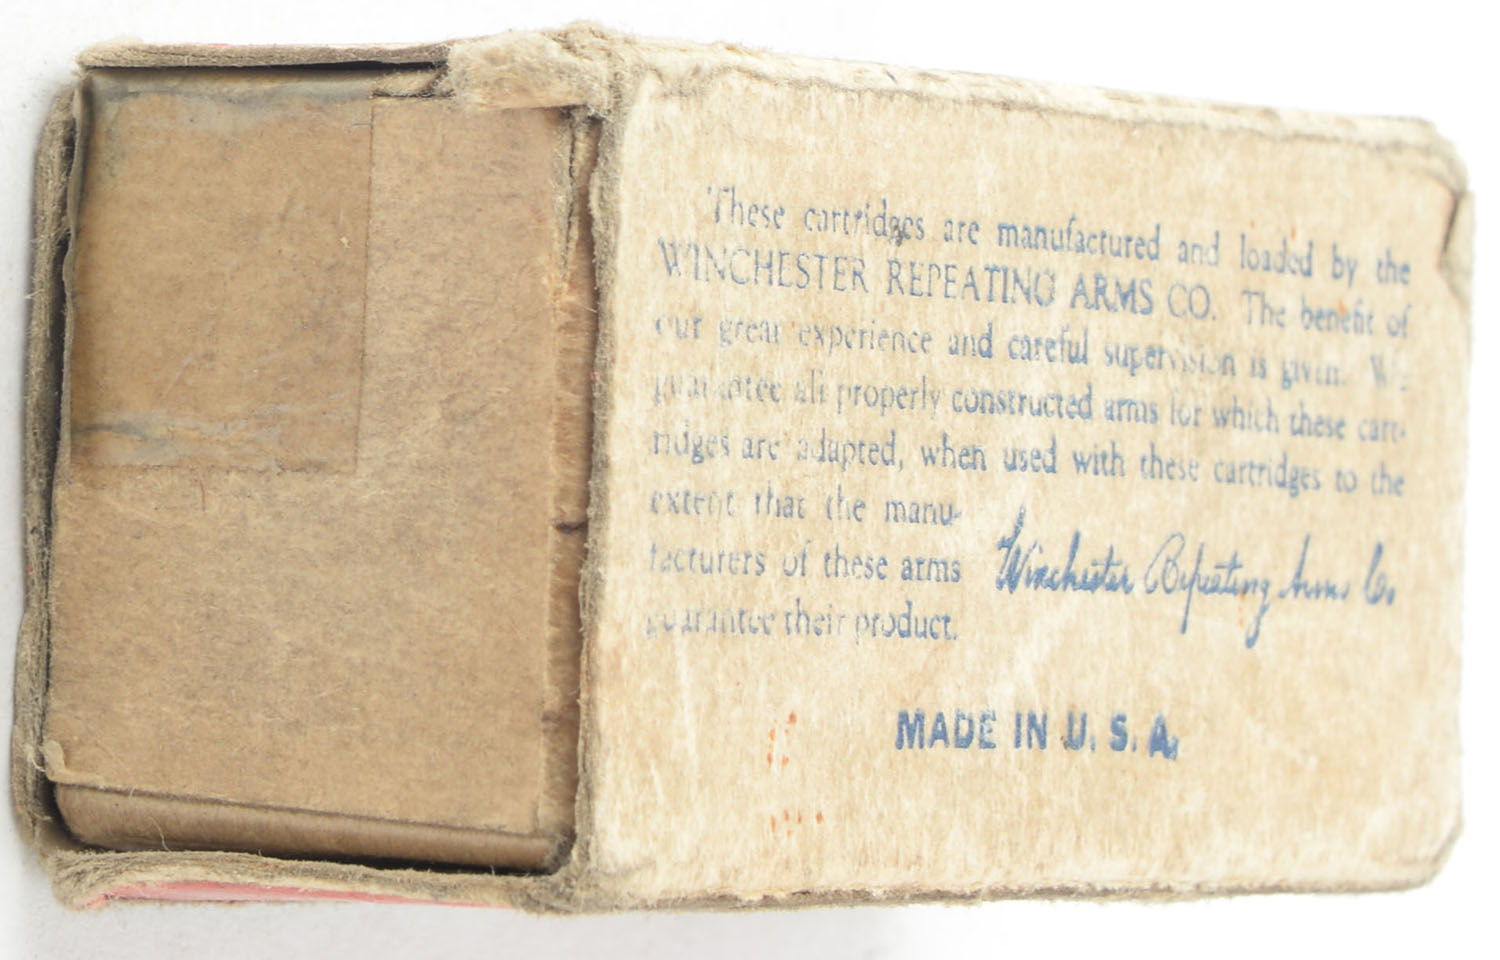 These cartridges are manufactured and loaded by the
WINCHESTER REPEATING ARMS CO. The benefit of
our great experience and careful supervision is given. We
guarantee all properly constructed arms for which these cart-
ridges are adapted, when used with these cartridges to the
extent that the manu-
facturers of these arms
guarantee their product.
Winchester Repeating Arms Co.
MADE IN U. S. A.